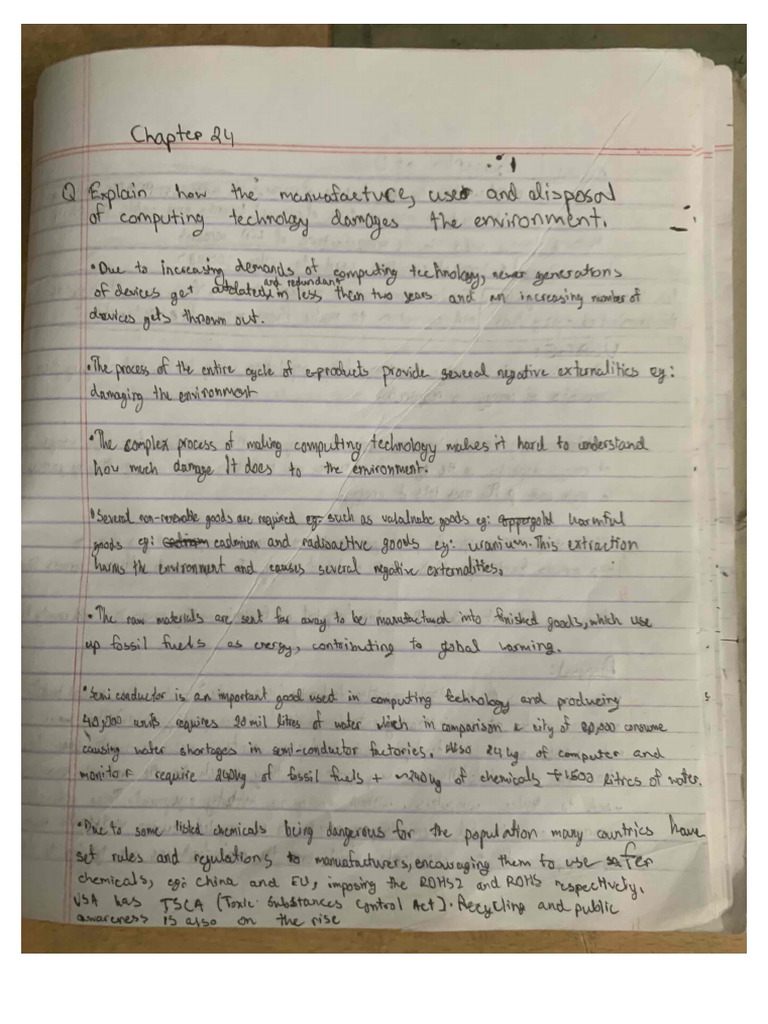 Chapter 24
Q Explain how the manufacture, use and disposal
of computing technology damages the environment.
• Due to increasing demands of computing technology, newer generations
of devices get outdated and redundant in less then two years and an increasing number of
devices gets thrown out.
• The process of the entire cycle of e-products provide several negative externalities eg:
damaging the environment
• The complex process of making computing technology makes it hard to understand
how much damage it does to the environment.
• Several non-renewable goods are required such as valuable goods eg: gold harmful
goods eg: cadmium and radioactive goods eg: uranium. This extraction
harms the environment and causes several negative externalities.
• The raw materials are sent far away to be manufactured into finished goods, which use
up fossil fuels as energy, contributing to global warming.
• Semi conductor is an important good used in computing technology and producing
40,000 units requires 20 mil litres of water which in comparison a city of consume
causing water shortages in semi-conductor factories. Also 24 kg of computer and
monitor require 240kg of fossil fuels + ~240kg of chemicals + 1500 litres of water.
• Due to some listed chemicals being dangerous for the population many countries have
set rules and regulations to manufacturers, encouraging them to use safer
chemicals, eg: China and EU, imposing the ROHS2 and ROHS respectively.
USA has TSCA (Toxic Substances Control Act). Recycling and public
awareness is also on the rise